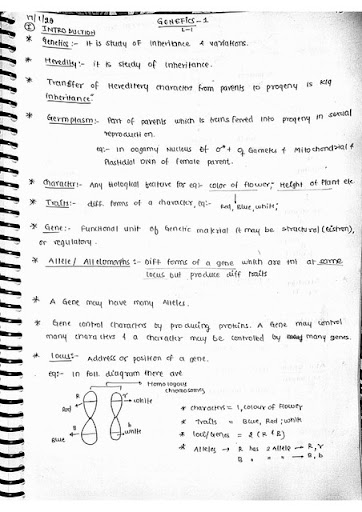 17/1/20 GENETICS-1
L-1
I INTRODUCTION
* Genetics:- It is study of inheritance & variations.
* Heredity:- it is study of inheritance.
* Transfer of Hereditery character from parents to progeny is k/q
inheritance"
* Germplasm:- Part of parents which is transferred into progeny in sexual
reproduction.
eg:- In oogamy Nucleus of ♂ + ♀ Gametes + Mitochondrial +
Plastidial DNA of female parent.
* Character:- Any Biological feature for eg:- color of flower, Height of Plant etc.
* Traits:- diff. forms of a character, eg:- Red, Blue, white,
* Gene:- Functional unit of Genetic material it may be structural (cistron),
or regulatory.
* Allele/ Allelomorphs:- Diff forms of a gene which are at same
locus but produce diff traits
* A Gene may have many Alleles.
* Gene control characters by producing proteins. A Gene may control
many characters & a character may be controlled by many genes.
* Locus:- Address or position of a gene.
eg:- in foll diagram there are
Homologous
chromosomes
R r
Red white
B b
Blue white
* characters = 1, colour of flower
* Traits = Blue, Red, white
* loci/Genes = 2 (R & B)
* Alleles → R has 2 Allele → R, r
B " " " → B, b